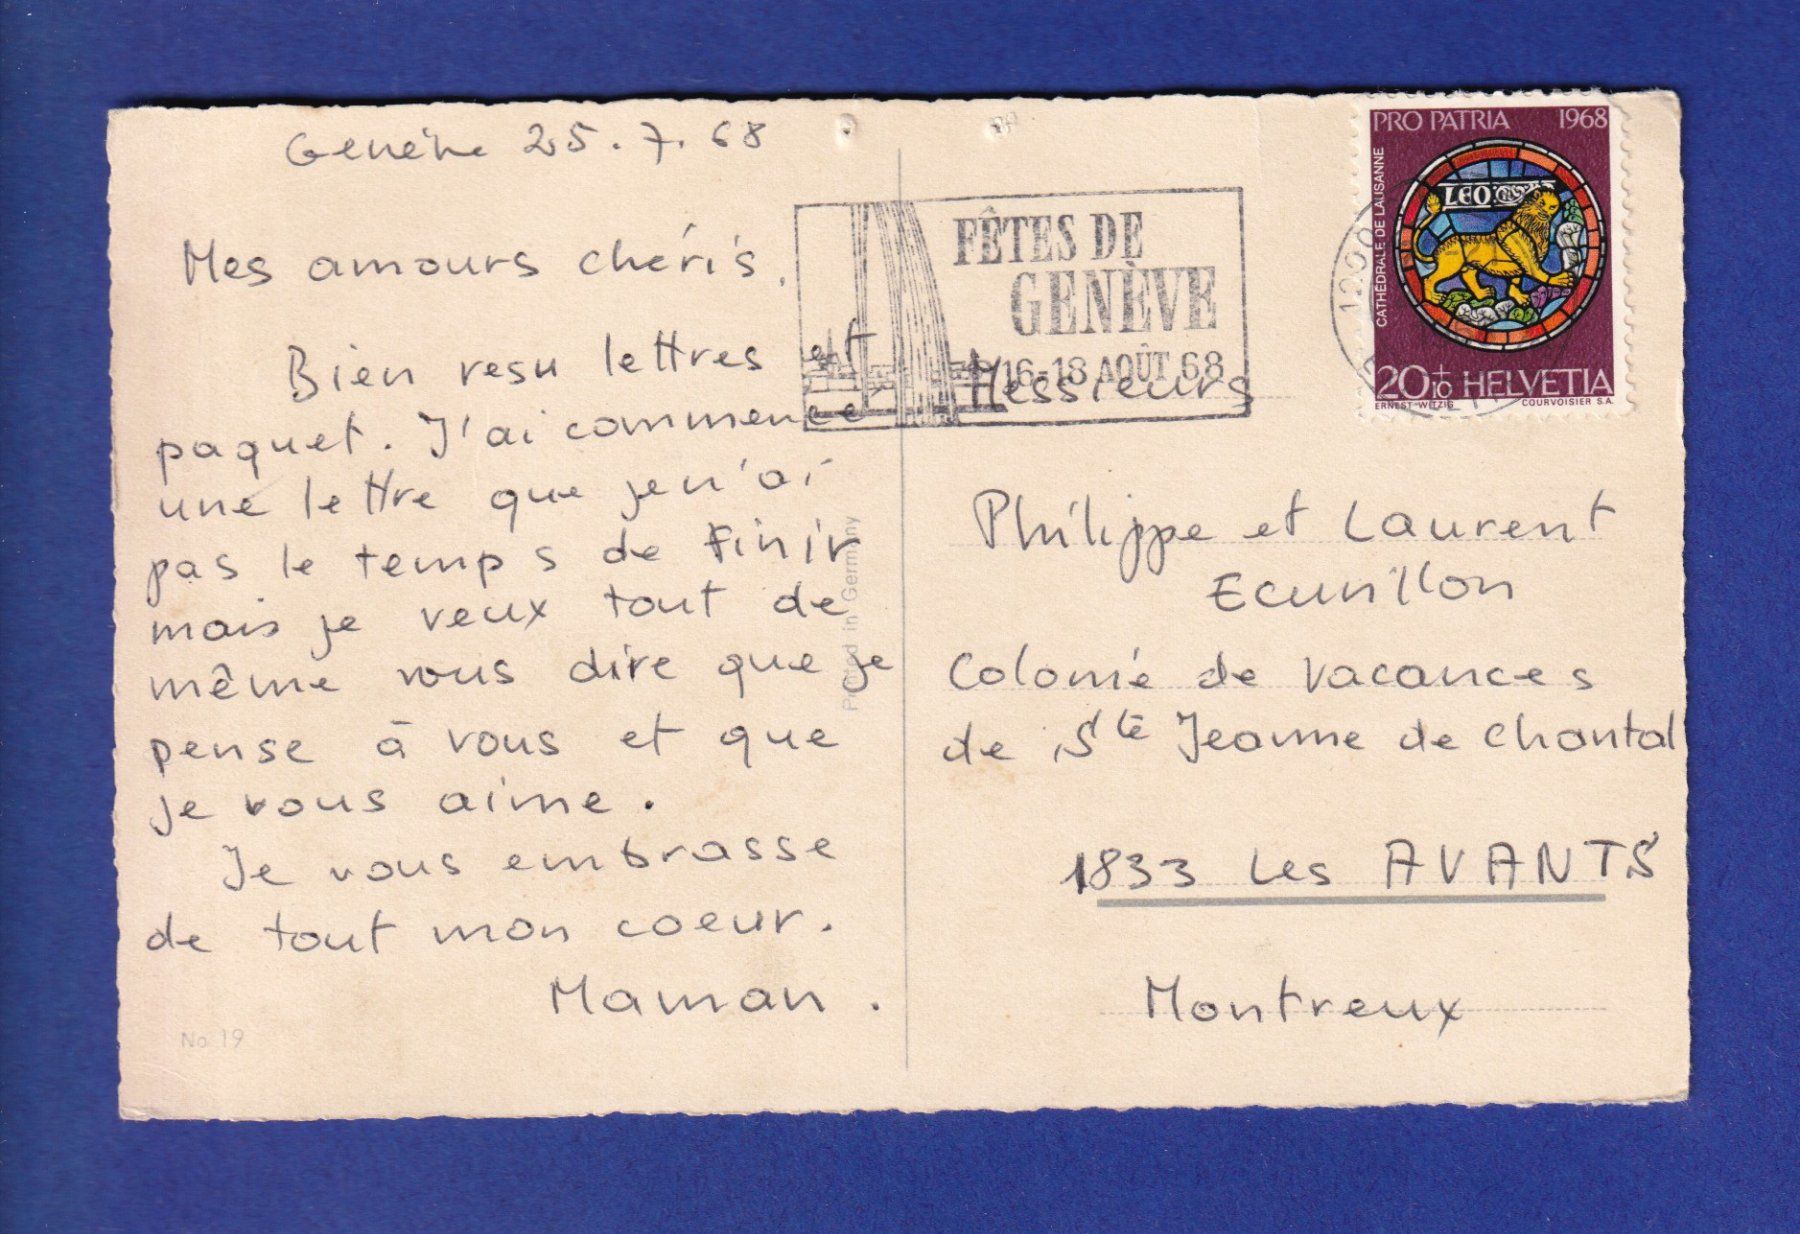 Genève 25.7.68
Mes amours chéris.
Bien resu lettres et
paquet. J'ai commence
une lettre que je n'ai
pas le temps de finir
mais je veux tout de
même vous dire que je
pense à vous et que
je vous aime.
Je vous embrasse
de tout mon coeur.
Maman.
No 19
Printed in Germany
FÊTES DE
GENÈVE
16-18 AOÛT 68
PRO PATRIA 1968
CATHÉDRALE DE LAUSANNE
LEO
20+10 HELVETIA
ERNEST WITZIG COURVOISIER S.A.
1200
Messieurs
Philippe et Laurent
Ecunillon
Colonie de vacances
de Ste Jeanne de Chantal
1833 Les AVANTS
Montreux